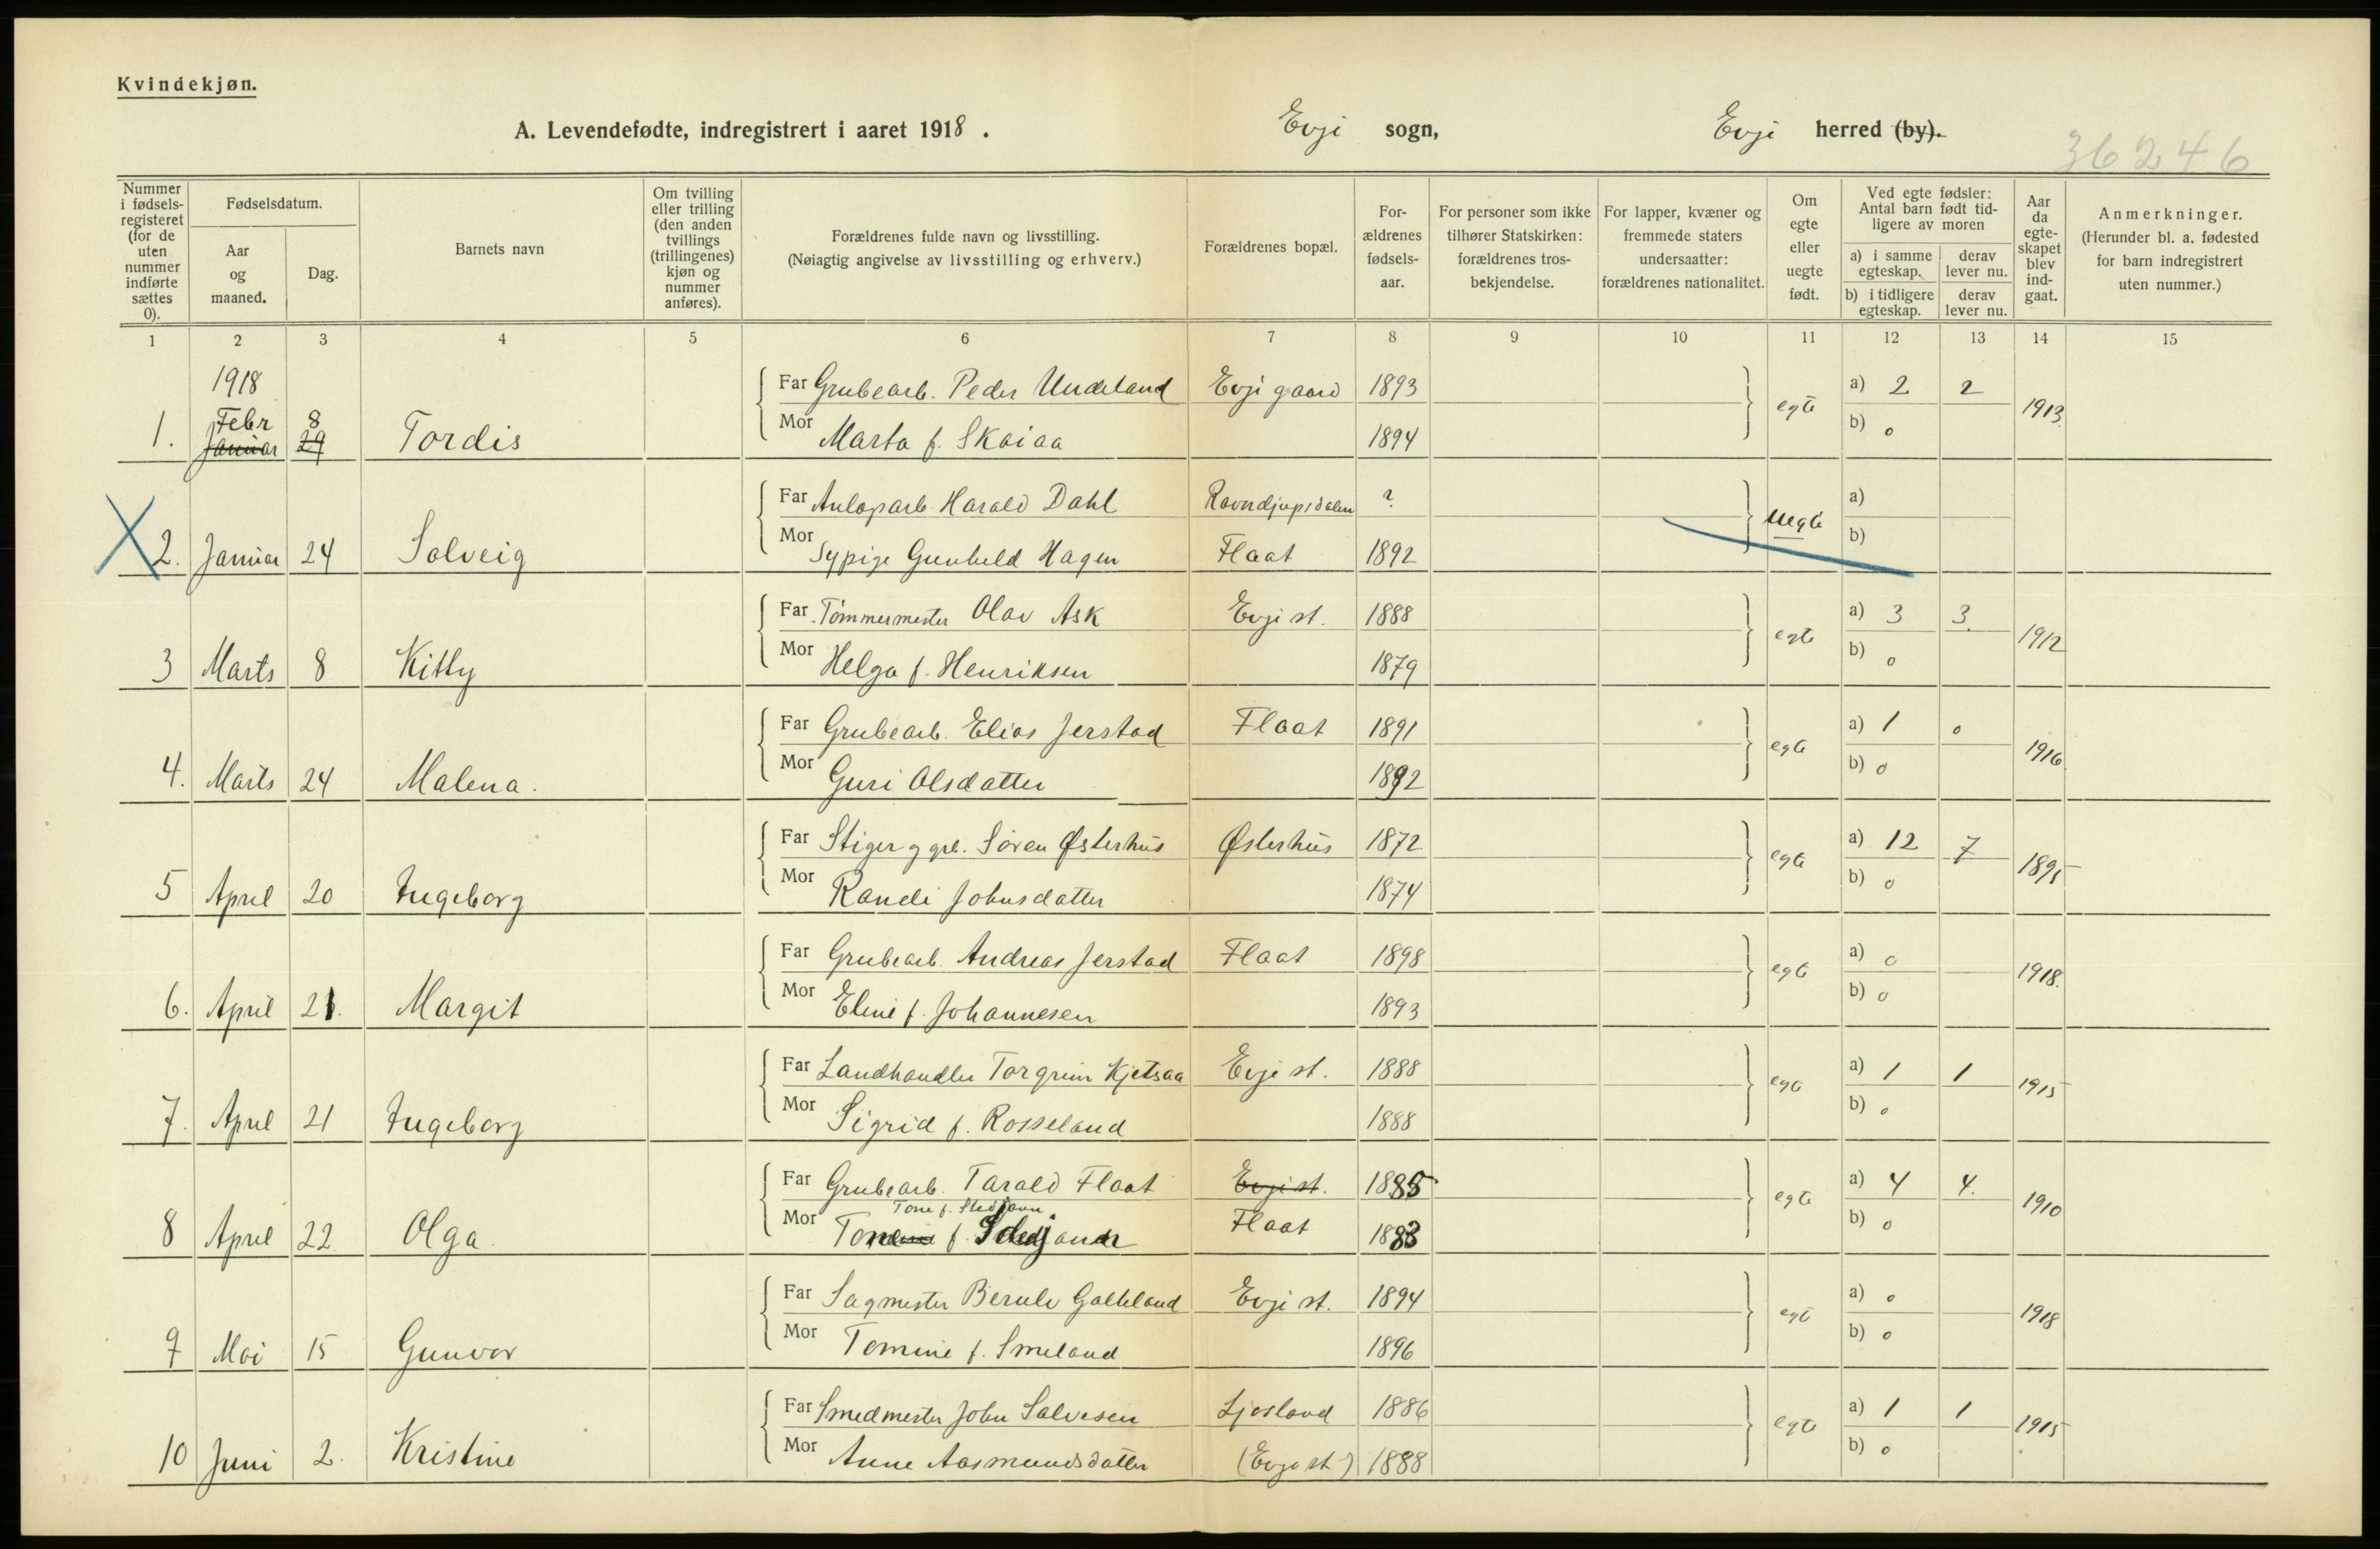 Kvindekjøn.
A. Levendefødte, indregistrert i aaret 1918 . Evje sogn, Evje herred (by).
36246
Nummer i fødsels-registeret (for de uten nummer indførte sættes 0).
Fødselsdatum.
Aar og maaned.
Dag.
Barnets navn
Om tvilling eller trilling (den anden tvillings (trillingenes) kjøn og nummer anføres).
Forældrenes fulde navn og livsstilling.
(Nøiagtig angivelse av livsstilling og erhverv.)
Forældrenes bopæl.
For-ældrenes fødsels-aar.
For personer som ikke tilhører Statskirken: forældrenes tros-bekjendelse.
For lapper, kvæner og fremmede staters undersaatter: forældrenes nationalitet.
Om egte eller uegte født.
Ved egte fødsler: Antal barn født tid-ligere av moren
a) i samme egteskap. derav lever nu.
b) i tidligere egteskap. derav lever nu.
Aar da egte-skapet blev ind-gaat.
Anmerkninger.
(Herunder bl. a. fødested for barn indregistrert uten nummer.)
1 2 3 4 5 6 7 8 9 10 11 12 13 14 15
1918
Far Grubearb. Peder Undeland Evje gaard 1893 a) 2 2
1. Febr 8 Januar 29 Tordis Mor Marta f. Skaiaa 1894 egte b) 0 1913.
Far Anlagsarb. Harald Dahl Ravndjupsdalen ? a)
2. Januar 24 Solveig Mor Sypige Gunhild Hagen Flaat 1892 uegte b)
Far Tömmermester Olav Ask Evje st. 1888 a) 3 3.
3 Marts 8 Kitty Mor Helga f. Henriksen 1879 egte b) 0 1912
Far Grubearb. Elias Jerstad Flaat 1891 a) 1 0
4. Marts 24 Malena. Mor Guri Olsdatter 1892 egte b) 0 1916.
Far Stiger g grb. Sören Østerhus Østerhus 1872 a) 12 7
5 April 20 Ingeborg Mor Randi Johnsdatter 1874 egte b) 0 1895
Far Grubearb. Andreas Jerstad Flaat 1898 a) 0
6. April 21. Margit Mor Eline f. Johannesen 1893 egte b) 0 1918.
Far Landhandler Torgrim Kjetsaa Evje st. 1888 a) 1 1
7. April 21 Ingeborg Mor Sigrid f. Rosseland 1888 egte b) 0 1915
Far Grubearb. Tarald Flaat Evje st. 1885 a) 4 4.
Tone f. Stedjann
8 April 22. Olga. Mor f. Flaat 1883 egte b) 0 1910
Far Sagmester Berulv Galteland Evje st. 1894 a) 0
9 Mai 15 Gunvor Mor Tomine f. Smeland 1896 egte b) 0 1918
Far Smedmester John Salvesen Ljosland 1886 a) 1 1
10 Juni 2. Kristine Mor Anne Aasmundsdatter (Evje st) 1888 egte b) 0 1915